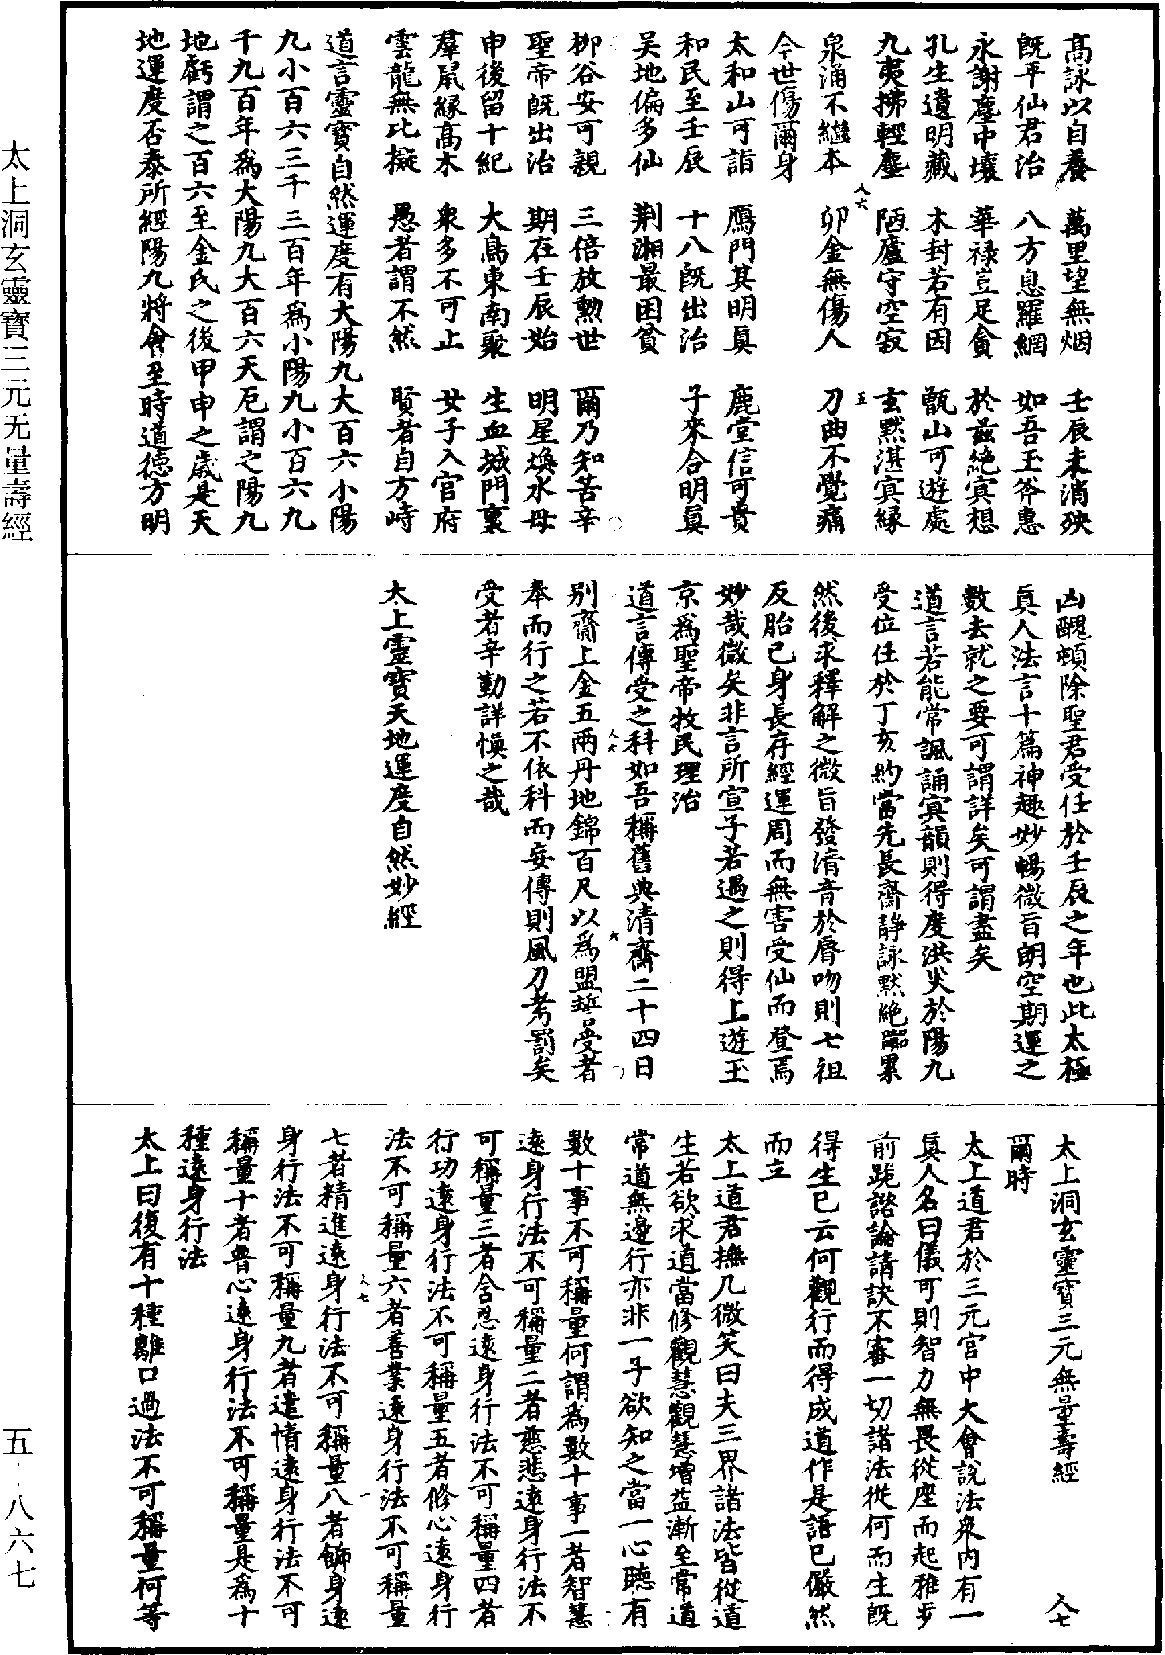 高詠以自養　萬里望無烟　壬辰未消殃
既平仙君治　八方息羅網　如吾玉斧惠
永謝塵中壤　華祿豈足貪　於兹絕冥想
孔生遺明藏　未封若有因　甑山可遊處
九夷拂輕塵　陋廬守空寂　玄默湛冥緣
泉涌不繼本　卯金無傷人　刀曲不覺痛
今世傷爾身
太和山可詣　鴈門其明真　鹿堂信可貴
和民至壬辰　十八既出治　子來合明真
吴地偏多仙　荆湘最困貧
柳谷安可親　三倍放勲世　爾乃知苦辛
聖帝既出治　期在壬辰始　明星煥水母
申後留十紀　大鳥東南聚　生血城門裏
羣鼠緣高木　衆多不可止　女子入官府
雲龍無比擬　愚者謂不然　賢者自方峙
道言靈寶自然運度有大陽九大百六小陽
九小百六三千三百年爲小陽九小百六九
千九百年爲大陽九大百六天厄謂之陽九
地虧謂之百六至金氏之後甲申之歲是天
地運度否泰所經陽九將會至時道德方明
凶醜頓除聖君受任於壬辰之年也此太極
真人法言十篇神趣妙暢微旨朗空期運之
數去就之要可謂詳矣可謂盡矣
道言若能常諷誦寘韻則得度洪灾於陽九
受位任於丁亥約當先長齋静詠黙絶囂累
然後求釋解之微旨發清音於脣吻則七祖
反胎已身長存經運周而無害受仙而登焉
妙哉微矣非言所宣子若遇之則得上遊玉
京爲聖帝牧民理治
道言傳受之科如吾稱舊典清齋二十四日
别齋上金五兩丹地錦百尺以爲盟誓受者
奉而行之若不依科而妄傳則風刀考罰矣
受者辛勤詳慎之哉
太上靈寶天地運度自然妙經
太上洞玄靈寶三元無量壽經　八七
爾時
太上道君於三元宫中大會說法衆内有一
真人名曰儀可則智力無畏從座而起雅步
前跪諮論請訣不審一切諸法從何而生既
得生已云何觀行而得成道作是語已儼然
而立
太上道君撫几微笑曰夫三界諸法皆從道
生若欲求道當修觀慧觀慧增益漸至常道
常道無邊行亦非一子欲知之當一心聽有
數十事不可稱量何謂爲數十事一者智慧
遠身行法不可稱量二者慈悲遠身行法不
可稱量三者含忍遠身行法不可稱量四者
行功遠身行法不可稱量五者修心遠身行
法不可稱量六者善業遠身行法不可稱量
七者精進遠身行法不可稱量八者飾身遠
身行法不可稱量九者遣情遠身行法不可
稱量十者普心遠身行法不可稱量是爲十
種遠身行法
太上曰復有十種離口過法不可稱量何等
太上洞玄靈寶三元无量壽經
五·八六七